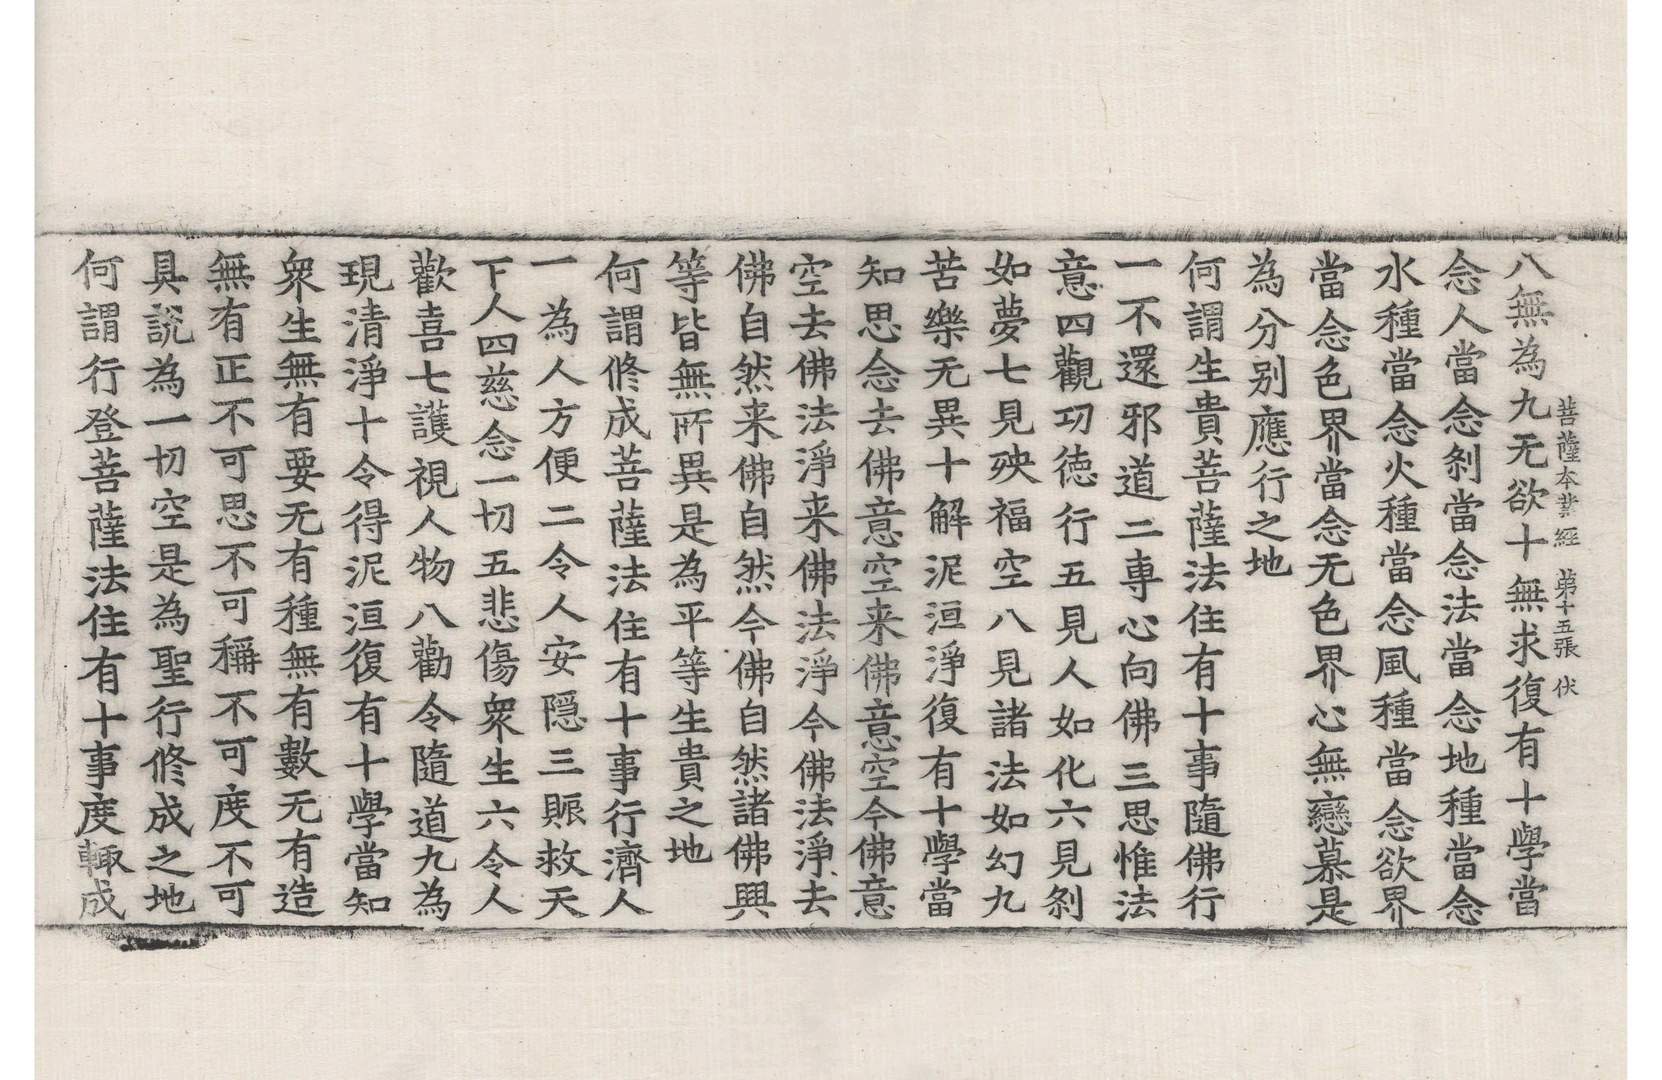 菩薩本業經　第十五張　伏
八無為九无欲十無求復有十學當
念人當念剎當念法當念地種當念
水種當念火種當念風種當念欲界
當念色界當念无色界心無戀慕是
為分别應行之地
何謂生貴菩薩法住有十事隨佛行
一不還邪道二專心向佛三思惟法
意四觀功德行五見人如化六見剎
如夢七見殃福空八見諸法如幻九
苦樂无異十解泥洹淨復有十學當
知思念去佛意空来佛意空今佛意
空去佛法淨来佛法淨今佛法淨去
佛自然来佛自然今佛自然諸佛興
等皆無所異是為平等生貴之地
何謂修成菩薩法住有十事行濟人
一為人方便二令人安隱三賑救天
下人四慈念一切五悲傷衆生六令人
歡喜七護視人物八勸令隨道九為
現清淨十令得泥洹復有十學當知
衆生無有要无有種無有數无有造
無有正不可思不可稱不可度不可
具說為一切空是為聖行修成之地
何謂行登菩薩法住有十事度輙成